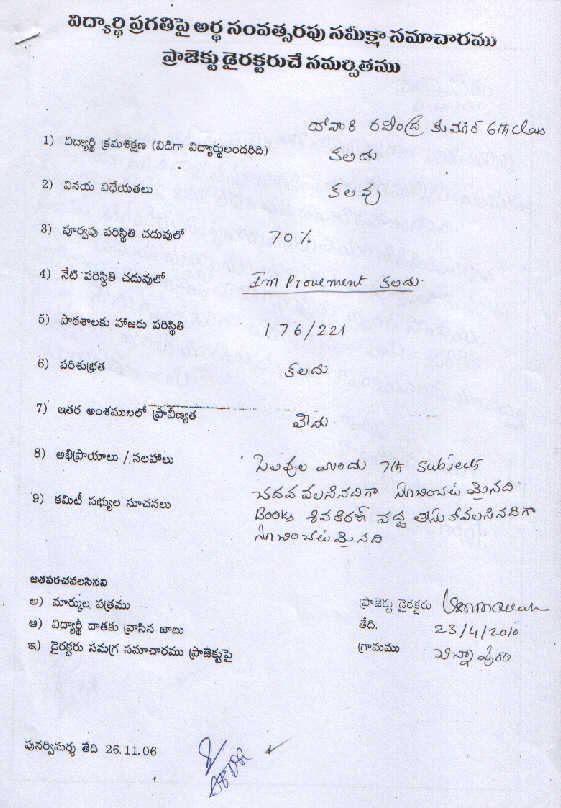 విద్యార్థి ప్రగతిపై అర్థ సంవత్సరపు సమీక్షా సమాచారము
ప్రాజెక్టు డైరక్టరుచే సమర్పితము
రవీంద్ర కుమార్ 6th class
1) విద్యార్థి క్రమశిక్షణ (విడిగా విద్యార్థులందరిది) కలదు
2) వినయ విధేయతలు కలవు
3) పూర్వపు పరిస్థితి చదువులో 70%
4) నేటి పరిస్థితి చదువులో Improvement కలదు
5) పాఠశాలకు హాజరు పరిస్థితి 176/221
6) పరిశుభ్రత కలదు
7) ఇతర అంశములలో ప్రావీణ్యత
8) అభిప్రాయాలు / సలహాలు సెలవుల ముందు 7th Subjects
చదవవలసినదిగా సూచించటమైనది
9) కమిటీ సభ్యుల సూచనలు Books శివకిరణ్ వద్ద తీసుకోవలసినదిగా
సూచించటమైనది
జతపరచవలసినవి
అ) మార్కుల పత్రము
ఆ) విద్యార్థి దాతకు వ్రాసిన జాబు
ఇ) డైరక్టరు సమగ్ర సమాచారము ప్రాజెక్టుపై
ప్రాజెక్టు డైరక్టరు
తేది. 23/4/2010
గ్రామము
పునర్విమర్శ తేది 26.11.06